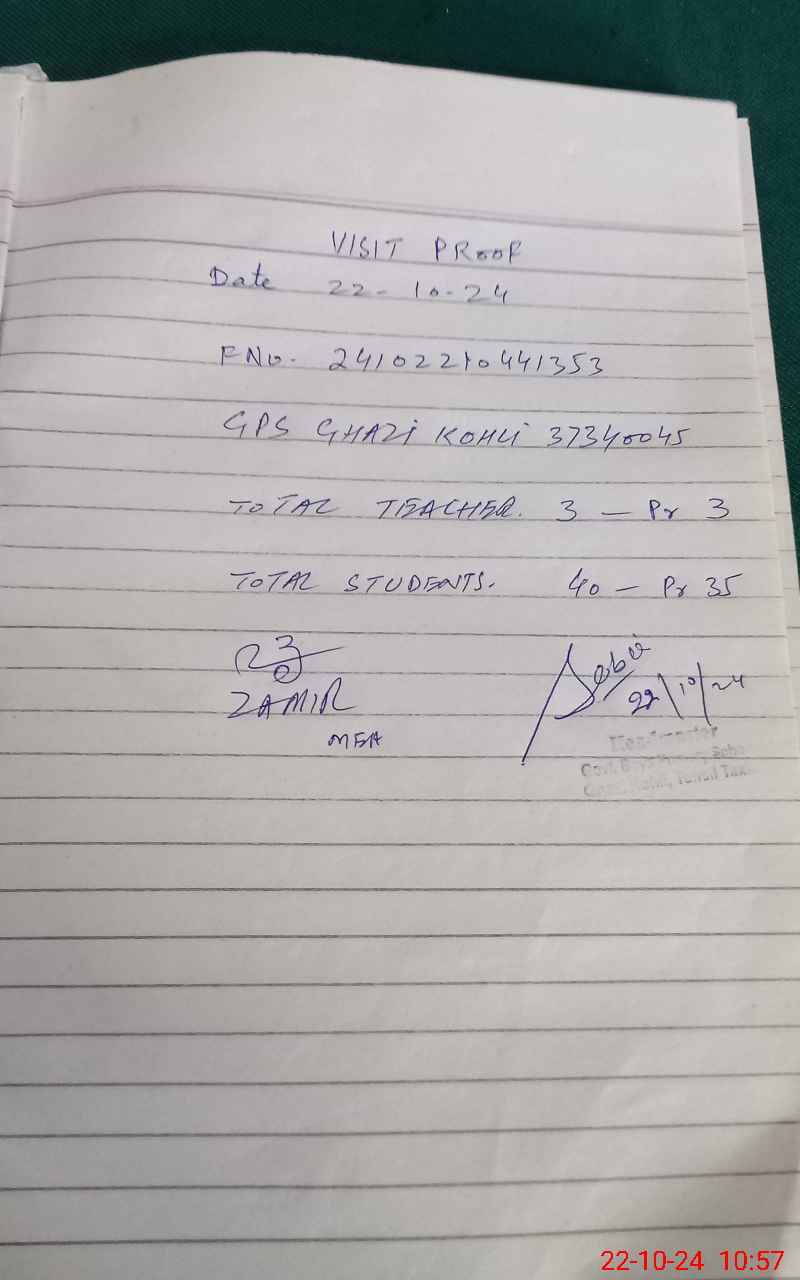 VISIT PROOF
Date 22-10-24
FNo. 24102210441353
GPS GHAZI KOHLI 37340045
TOTAL TEACHER. 3 — Pr 3
TOTAL STUDENTS. 40 — Pr 35
ZAMIR
MEA
22/10/24
Headmaster
Govt. Boys Primary
22-10-24 10:57